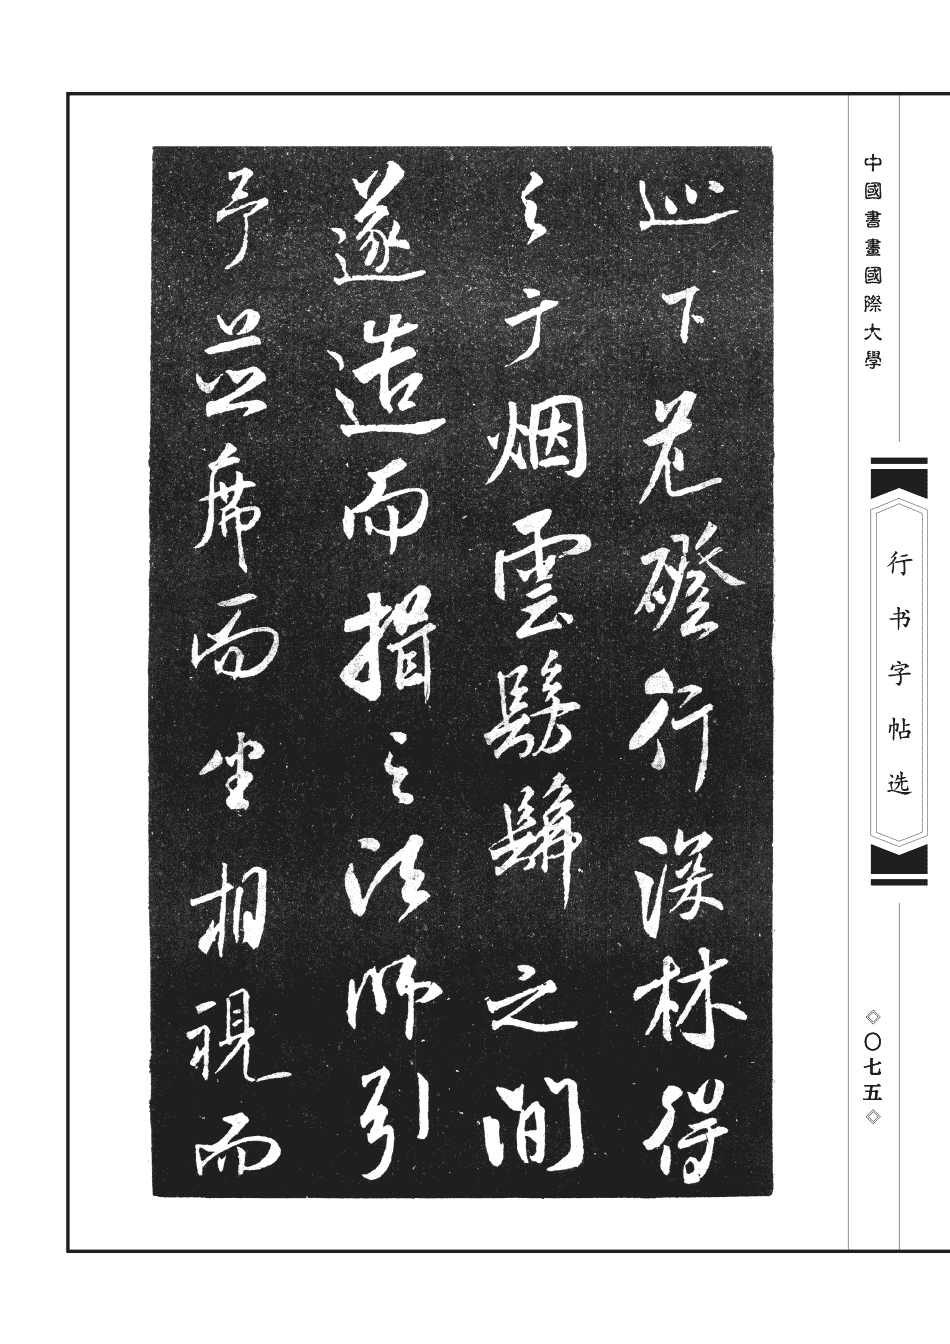 巡下危磴行深林得
之于烟雲髣髴之間
遂造而揖之法師引
予並席而坐相視而
中國書畫國際大學
行书字帖选
〇七五